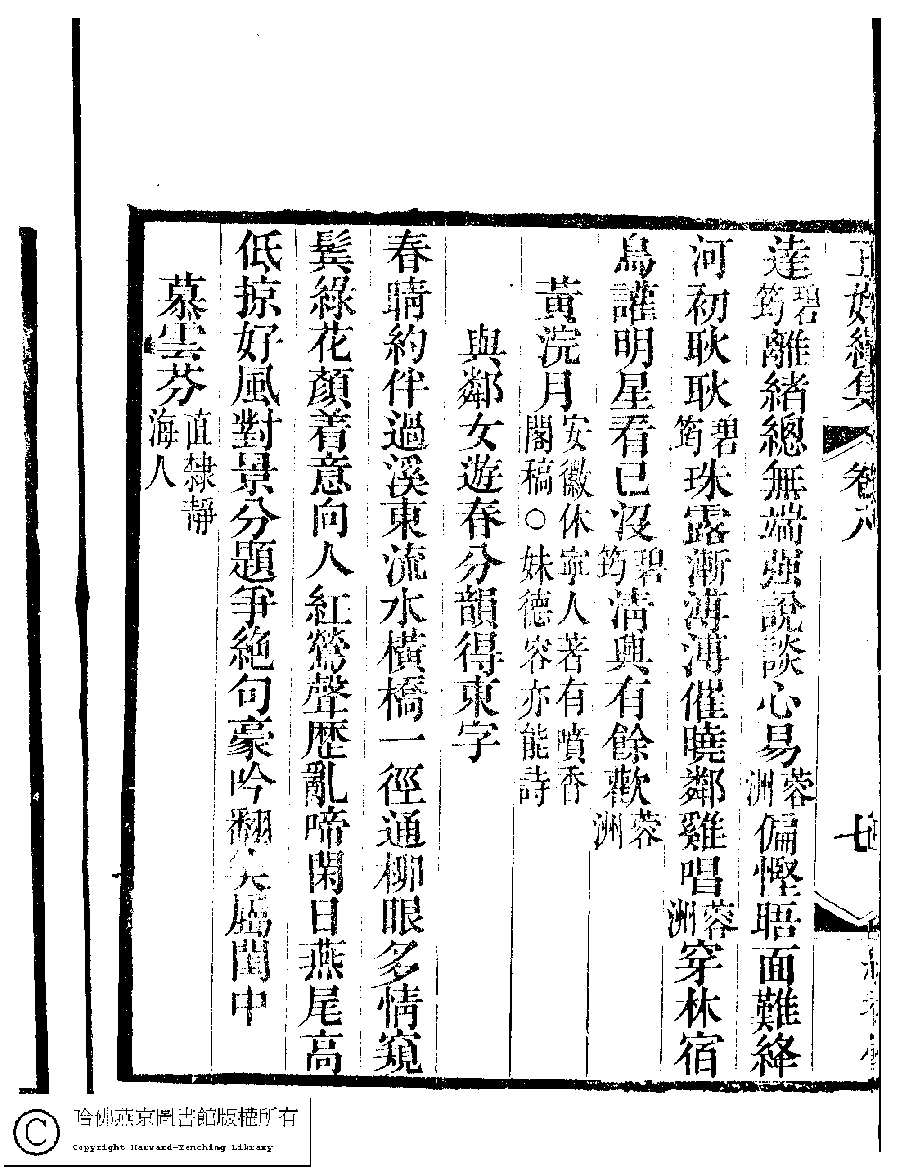 正始續集 卷八 七
蓬碧筠離緒總無端强說談心易蓉洲偏慳晤面難絳
河初耿耿碧筠珠露漸漙漙催曉鄰雞唱蓉洲穿林宿
鳥讙明星看已沒碧筠清興有餘歡蓉洲
黃浣月安徽休寧人著有噴香閣稿○妹德容亦能詩
與鄰女遊春分韻得東字
春晴約伴過溪東流水橫橋一徑通柳眼多情窺
鬂綠花顏着意向人紅鶯聲歷亂啼閑日燕尾高
低掠好風對景分題爭絶句豪吟翻笑屬閨中
慕雲芬直隸靜海人
哈佛燕京圖書館版權所有
Copyright Harvard-Yenching Library